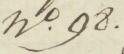 No. 98.